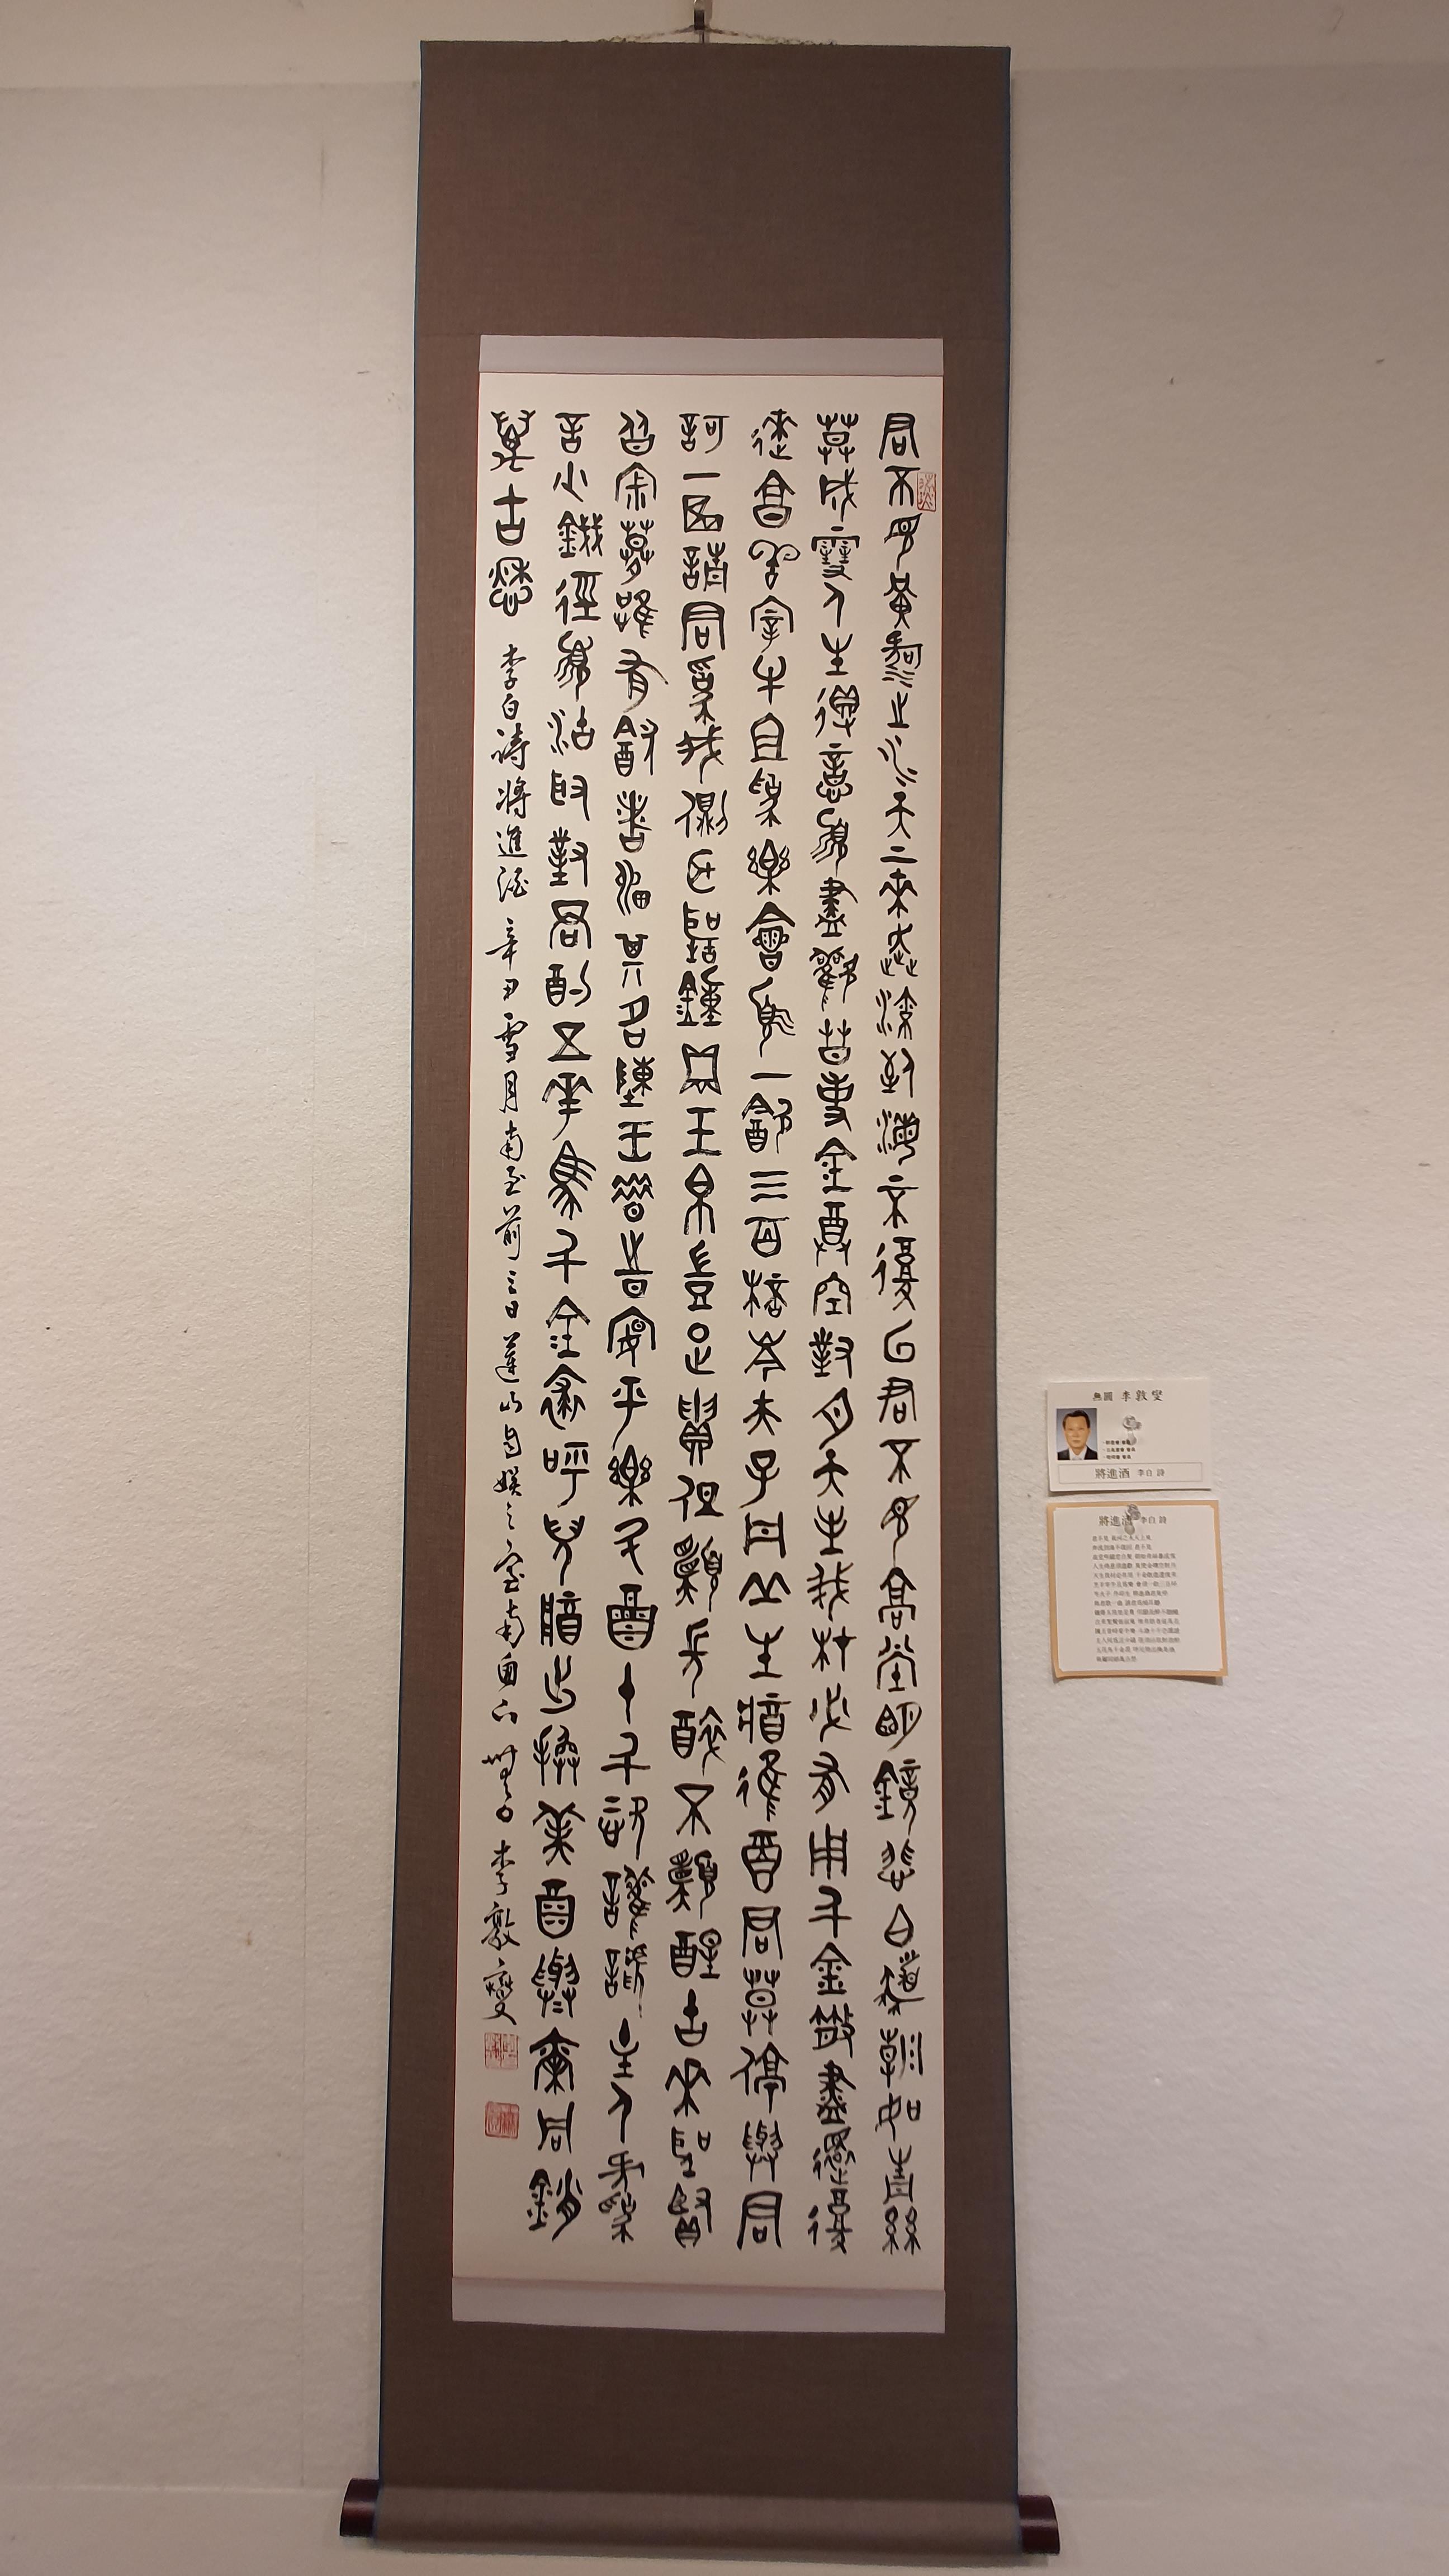 君不見黃河之水天上來奔流到海不復回君不見高堂明鏡悲白髮朝如青絲
暮成雪人生得意須盡歡莫使金尊空對月天生我材必有用千金散盡還復
來烹羊宰牛且爲樂會須一飮三百杯岑夫子丹丘生將進酒君莫停與君
歌一曲請君爲我側耳聽鍾鼎玉帛豈足貴但願長醉不願醒古來聖賢
皆寂寞惟有飮者留其名陳王昔時宴平樂斗酒十千恣讙謔主人何爲
言少錢徑須沽取對君酌五花馬千金裘呼兒將出換美酒與爾同銷
萬古愁 李白詩將進酒 辛丑雪月南至前三日蓮山自娛之室南窗下 無○ 李敦燮
無圓 李敦燮
將進酒 李白 詩
將進酒 李白 詩